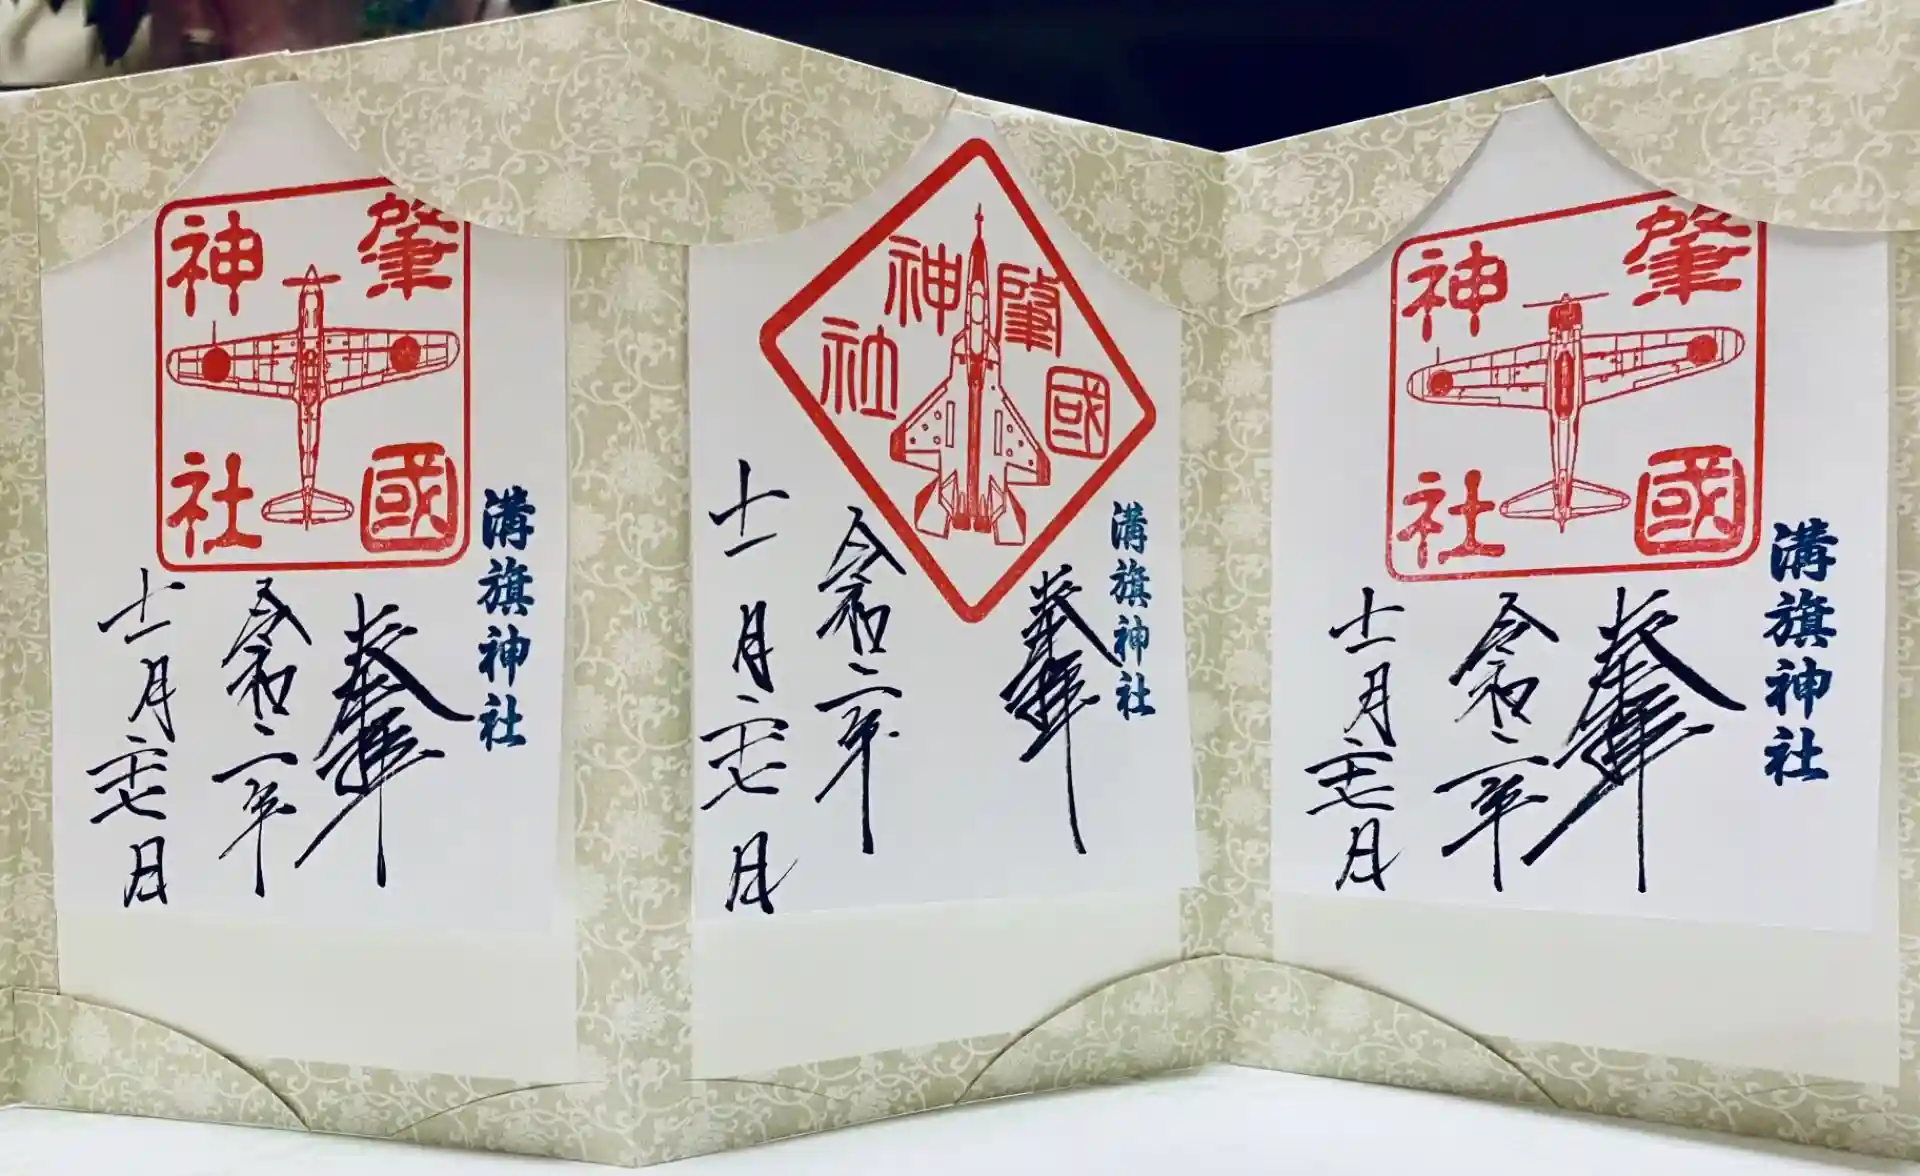 肇國
神社
溝旗神社
奉拝
令和二年
十一月二十七日
肇國
神社
溝旗神社
奉拝
令和二年
十一月二十七日
肇國
神社
溝旗神社
奉拝
令和二年
十一月二十七日